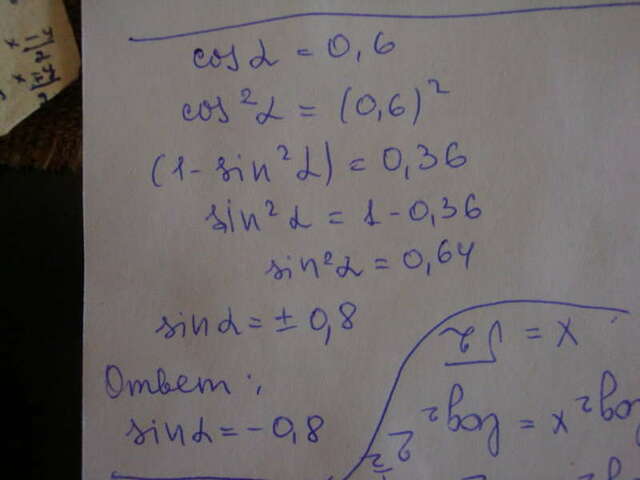 cos α = 0,6
cos²α = (0,6)²
(1 - sin²α) = 0,36
sin²α = 1 - 0,36
sin²α = 0,64
sin α = ± 0,8
Ответ:
sin α = - 0,8
x = √2
log₂ x = log₂ 2^½